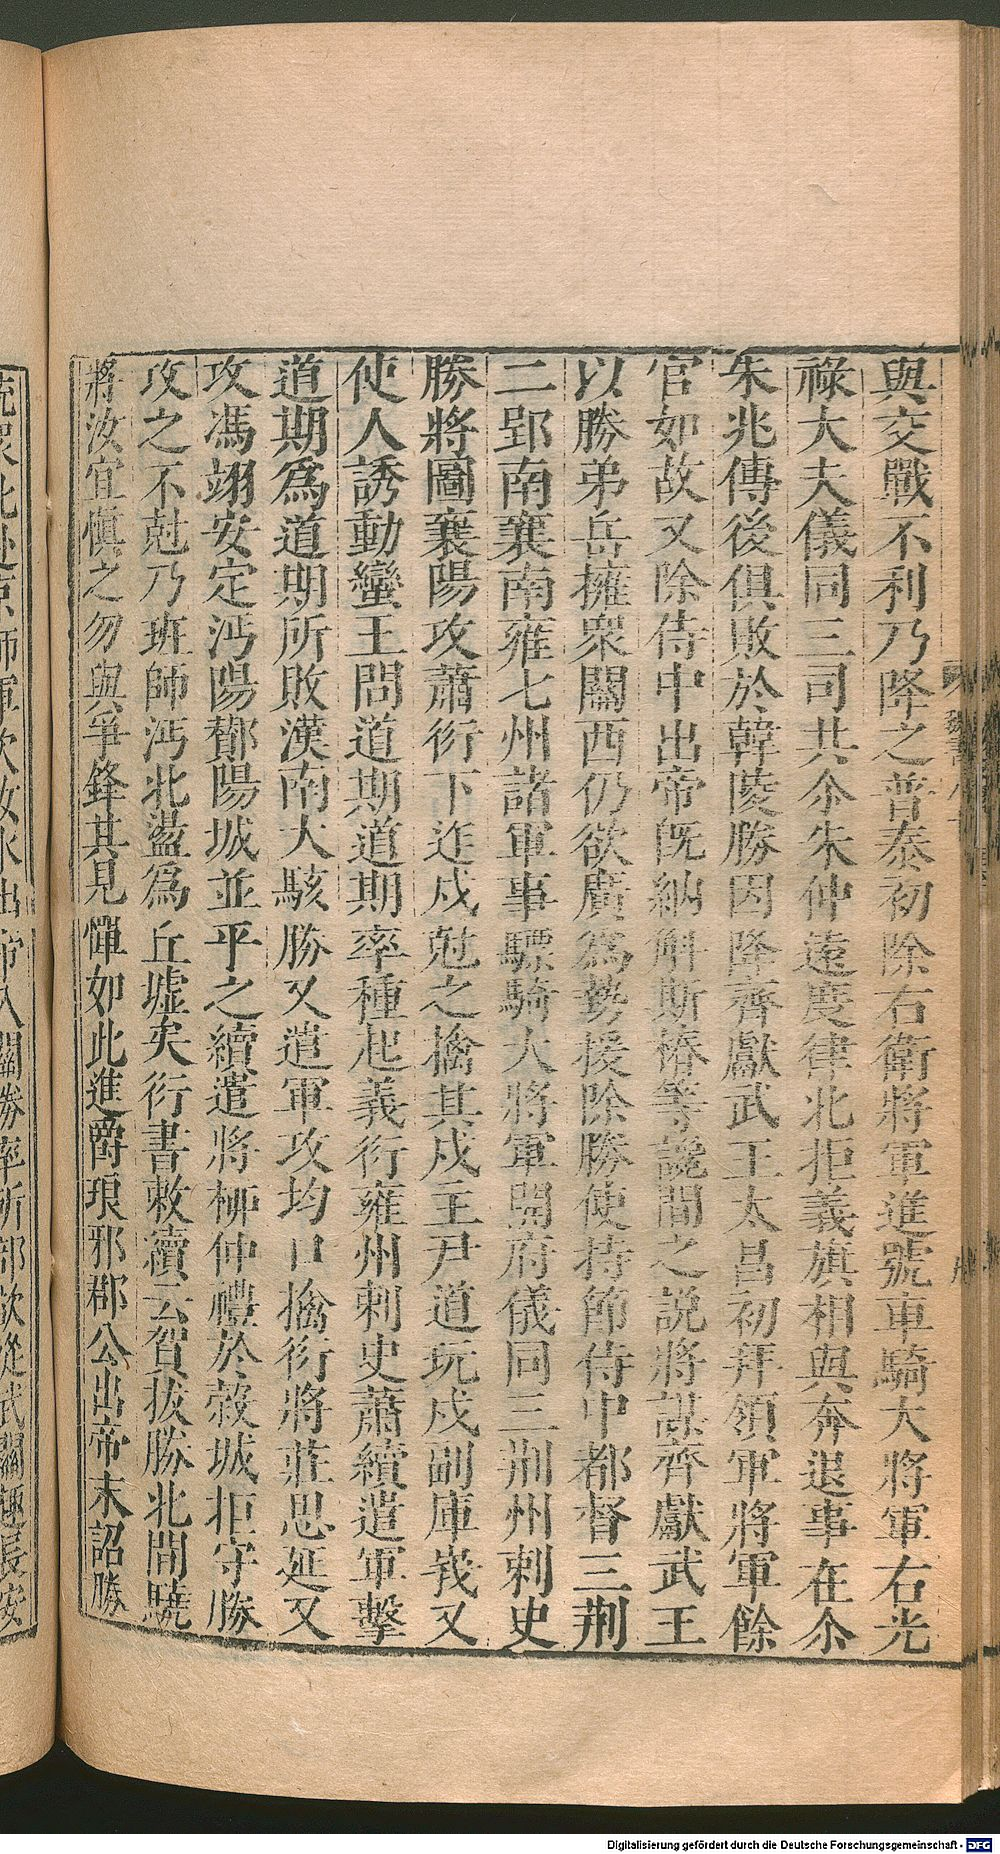 與交戰不利乃降之普泰初除右衛將軍進號車騎大將軍右光
祿大夫儀同三司共尒朱仲遠度律北拒義旗相與奔退事在尒
朱兆傳後俱敗於韓陵勝因降齊獻武王太昌初拜領軍將軍餘
官如故又除侍中出帝旣納斛斯椿等讒間之說將謀齊獻武王
以勝弟岳擁衆關西仍欲廣爲勢援除勝使持節侍中都督三荆
二郢南襄南雍七州諸軍事驃騎大將軍開府儀同三司荆州刺史
勝將圖襄陽攻蕭衍下迮戍尅之擒其戍主尹道玩戍副庫峩又
使人誘動蠻王問道期道期率種起義衍雍州刺史蕭續遣軍擊
道期爲道期所敗漢南大駭勝又遣軍攻均口擒衍將莊思延又
攻馮翊安定沔陽酇陽城並平之續遣將柳仲禮於榖城拒守勝
攻之不尅乃班師沔北盪爲丘墟矣衍書敕續云賀拔勝北間驍
將汝宜愼之勿與爭鋒其見憚如此進爵琅邪郡公出帝末詔勝
魏書八十
Digitalisierung gefördert durch die Deutsche Forschungsgemeinschaft - DFG